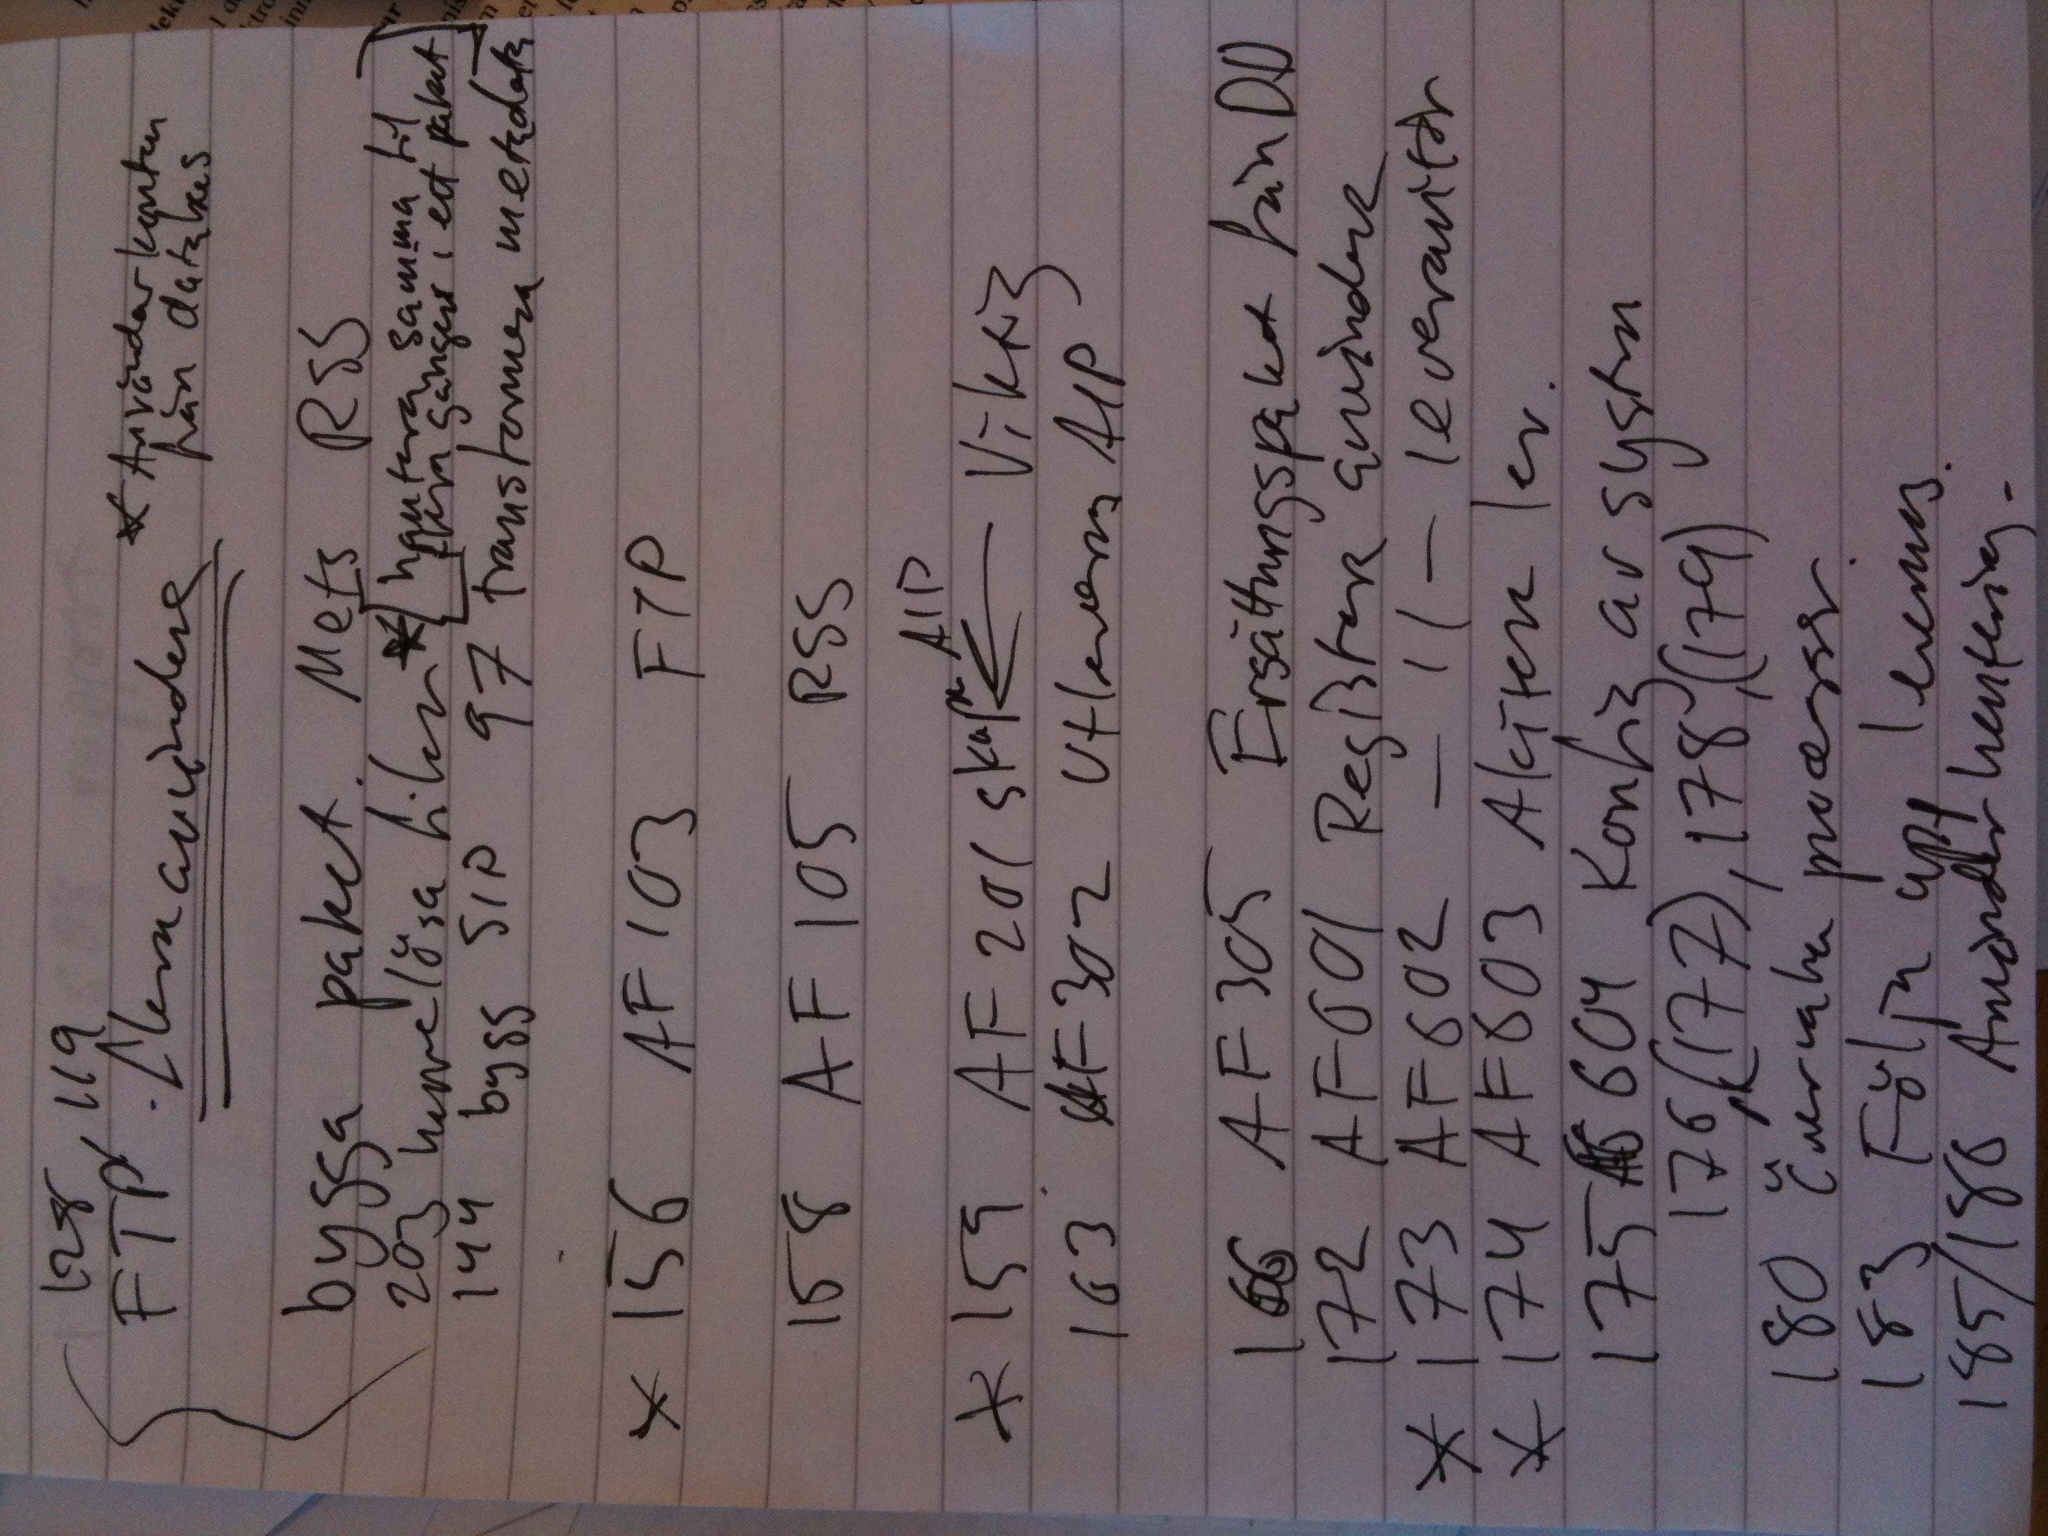 128, 119
FTP - flera användare
* Användarkonton
från databas
bygga paket. Mets RSS
203 hemlösa filer * [hantera samma fil
flera gånger i ett paket]
144 bygg SIP 97 transformera metadata
* 156 AF 103 FTP
158 AF 105 RSS
* 159 AF 201 skapa AIP ← Viktig
163 AF 302 Utleverera AIP
166 AF 305 Ersättningspaket från DD
172 AF601 Registrera användare
* 173 AF602 — 11 — leverantör
* 174 AF603 Aktivera lev.
175 AF 604 Konfig av system
176, (177), 178, (179)
180 Övervaka processer.
183 Följa upp leverans.
185/186 Användarhantering.